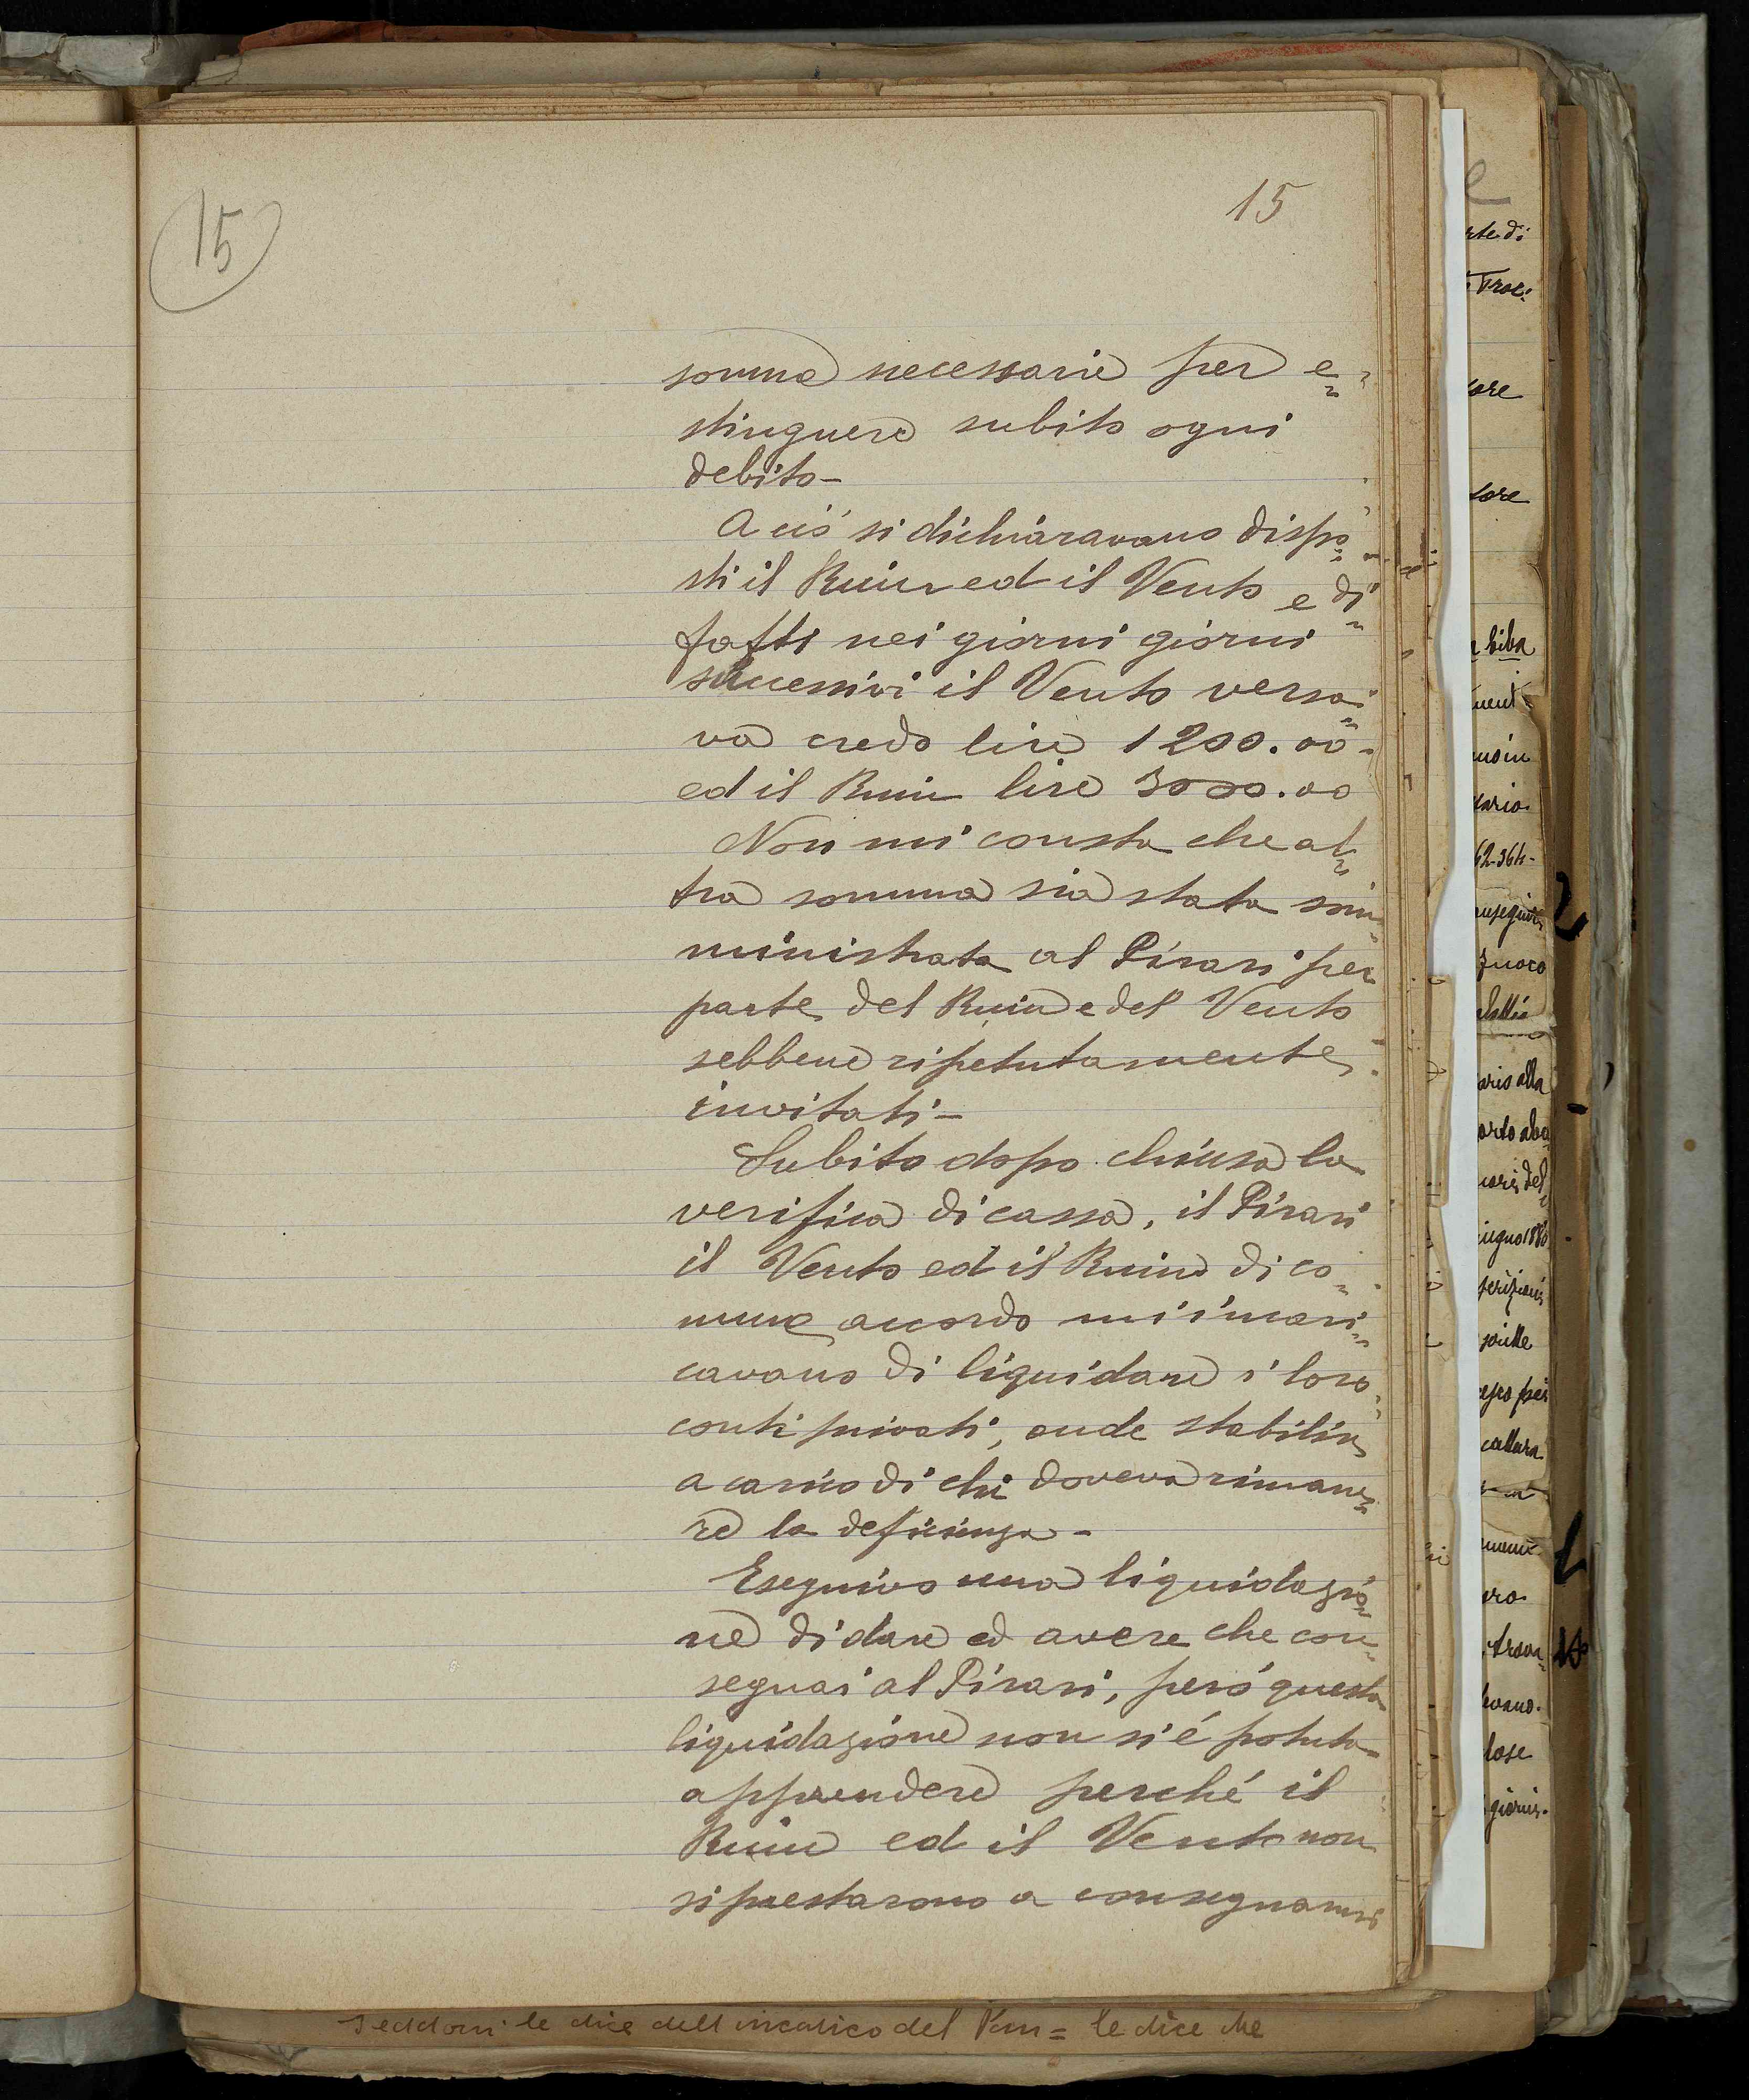 15
15
somme necessarie per e=
stinguere subito ogni
debito-
A ció si dichiaravano dispo=
sti il Ruiu ed il Vento e di=
fatti nei giorni giorni
successivi il Vento versa=
va credo lire 1200.00-
ed il Ruiu lire 3000.00
Non mi consta che al=
tra somma sia stata som=
ministrata al Pirari per
parte del Ruiu e del Vento
sebbene ripetutamente
invitati-
Subito dopo chiusa la
verifica di cassa, il Pirari
il Vento ed il Ruiu di co=
mune accordo mi incari=
cavano di liquidare i loro
conti privati, onde stabilire
a carico di chi doveva rimane=
re la deficienza-
Eseguivo una liquidazio=
ne di dare ed avere che con=
segnai al Pirari, peró questa
liquidazione non si é potuta
apprendere perché il
Ruiu ed il Vento non
si prestarono a consegnarmi
le dice dell'incarico del = le dice che
rte di
tore
tore
62-364-
Zuoco
aris alla
pro
giorni-